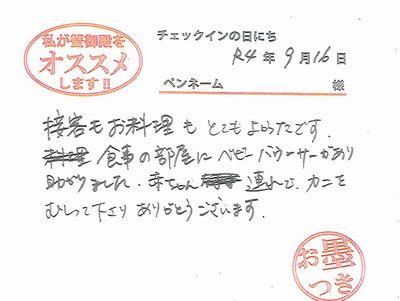 私が蟹御殿を
オススメ
します!!
チェックインの日にち
R4年9月16日
ペンネーム 様
接客もお料理もとてもよかったです.
食事の部屋にベビーバウンサーがあり
助かりました.赤ちゃん連れで、カニを
むしって下さりありがとうございます.
お墨
つき